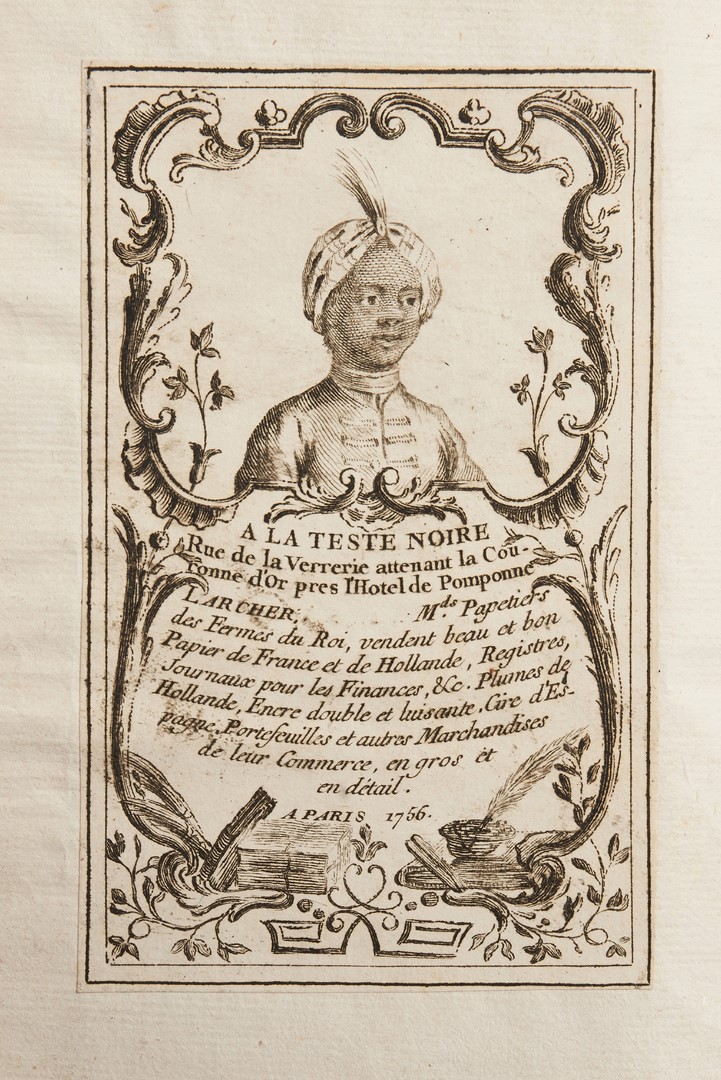 A LA TESTE NOIRE
Rue de la Verrerie attenant la Cou-
ronne d'Or pres l'Hotel de Pomponne
LARCHER, M.ds Papetiers
des Fermes du Roi, vendent beau et bon
Papier de France et de Hollande, Registres,
Journaux pour les Finances, &c. Plumes de
Hollande, Encre double et luisante. Cire d'Es-
pagne. Portefeuilles et autres Marchandises
de leur Commerce, en gros et
en détail.
A PARIS 1756.